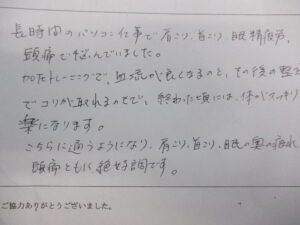 長時間のパソコン仕事で肩こり、首こり、眼精疲労、
頭痛で悩んでいました。
加圧トレーニングで、血流が良くなるのと、その後の整体
でコリが取れるので、終わった頃には、体がスッキリ
楽になります。
こちらに通うようになり、肩こり、首こり、眼の奥の疲れ
頭痛ともに絶好調です。
ご協力ありがとうございました。